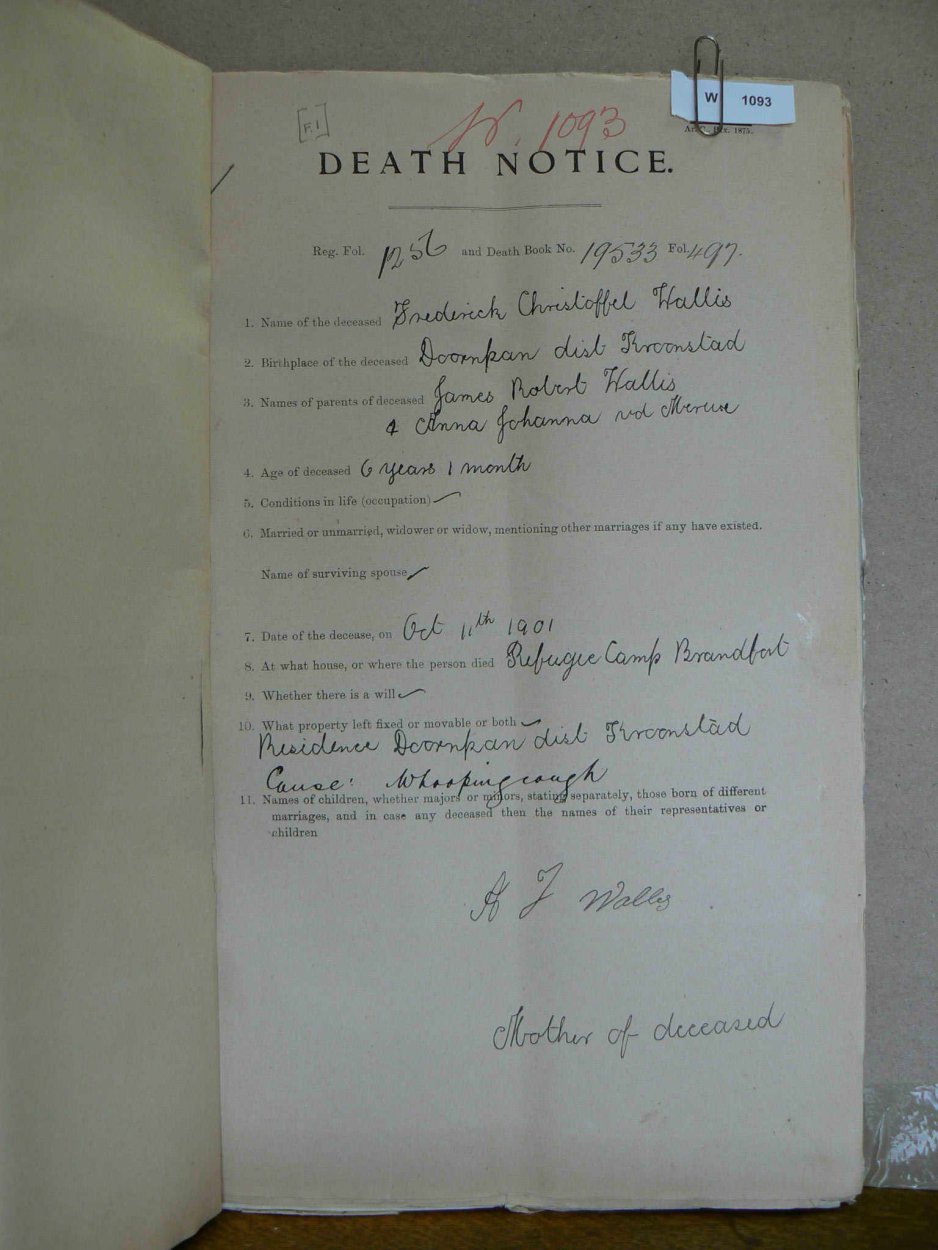 W 1093
[F.1]
W. 1093
DEATH NOTICE.
Reg. Fol. 1256 and Death Book No. 19533 Fol. 497.
1. Name of the deceased Frederick Christoffel Wallis
2. Birthplace of the deceased Doornpan dist Kroonstad
3. Names of parents of deceased James Robert Wallis
& Anna Johanna vd Merwe
4. Age of deceased 6 years 1 month
5. Conditions in life (occupation)
6. Married or unmarried, widower or widow, mentioning other marriages if any have existed.
Name of surviving spouse
7. Date of the decease, on Oct 11th 1901
8. At what house, or where the person died Refugee Camp Brandfort
9. Whether there is a will
10. What property left fixed or movable or both
Residence Doornpan dist Kroonstad
Cause: Whoopingcough
11. Names of children, whether majors or minors, stating separately, those born of different
marriages, and in case any deceased then the names of their representatives or
children
Wallis
Mother of deceased